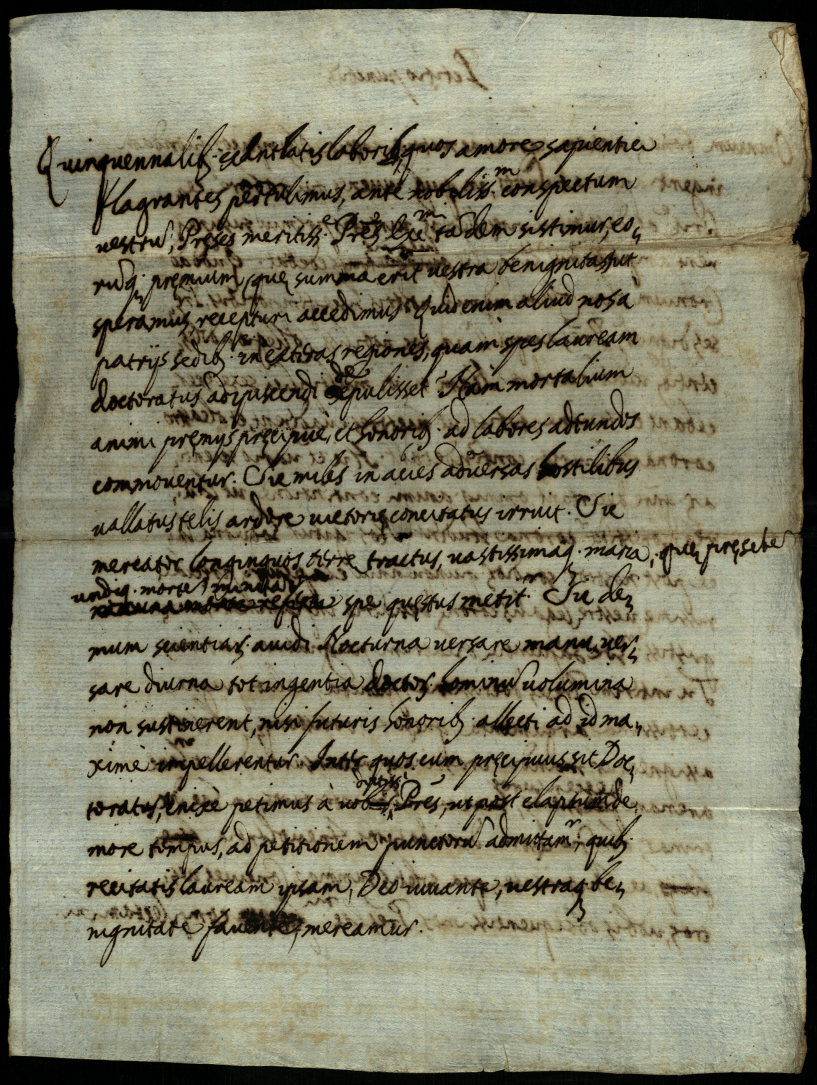 Quinquennalib. exantlatis laborib. quos amore sapientię
flagrantes pertulimus, ante nobiliss.m conspectum
vestrũ, Preses meritiss.e Pres Exc.mi tãdem sistimur, eo,
rũq. premium, quę summa erit vestra benignitas, ut
speramus, recepturi accedimus. Quid enim aliud nos a
patrijs sedib. in exteras regiones, quam spes lauream
doctoratus adipiscendi depulisset? Nam mortalium
animi premijs pręcipue, et honorib. ad labores adeundos
commoventur. Sic miles in acies adversas hostilibus
vallatus telis ardore victorię concitatus irruit. Sic
mercator longinquos terrę tractus, vastissimaq. maria, quę pręsetẽ
undiq. mortẽ minitãt
spe questus metitr. Sic de,
mum scientiar. avidi Nocturna versare manu, ver,
sare diurna tot ingentia doctor. hominũ volumina
non sustinerent, nisi futuris honorib. allecti ad id ma,
ximè impellerentur. Inter quos cum pręcipuus sit Doc,
toratus, enixè petimus à vobis, Pres, ut post elaptũ de
more tempus, ad petitionem punctorũ admittamr, quib.
recitatis lauream ipsam, Deo iuvante, vestraq. be,
nignitate favente, mereamur.